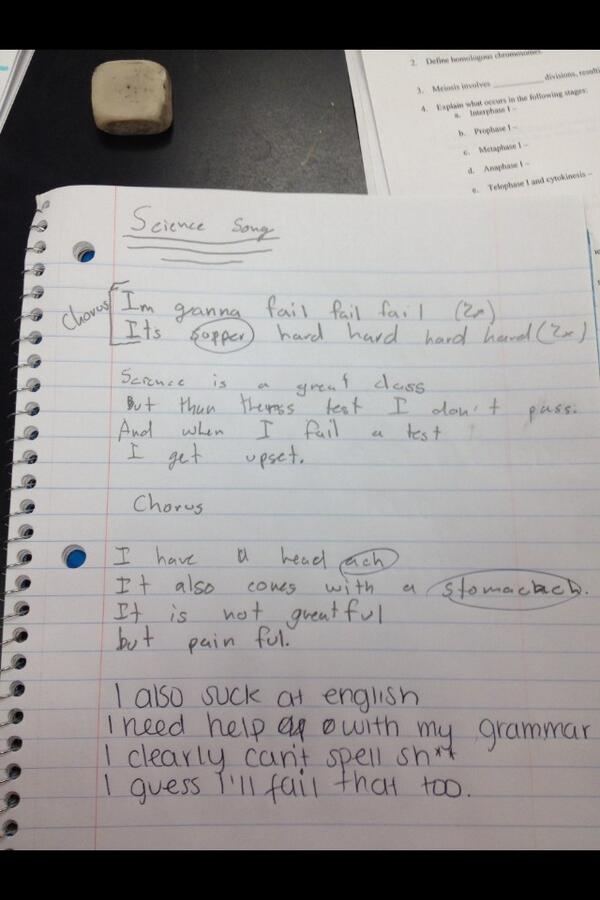 2. Define homologous chromosomes.
3. Meiosis involves __________ divisions, resulti
4. Explain what occurs in the following stages:
a. Interphase I –
b. Prophase I –
c. Metaphase I –
d. Anaphase I –
e. Telophase I and cytokinesis –
Science Song
Chorus
Im ganna fail fail fail (2x)
Its sopper hard hard hard hard (2x)
Science is a great class
But than test I don't pass.
And when I fail a test
I get upset.
Chorus
I have a head ach
It also comes with a stomacach.
It is not greatful
but pain ful.
I also suck at english
I need help with my grammar
I clearly can't spell sh**
I guess I'll fail that too.